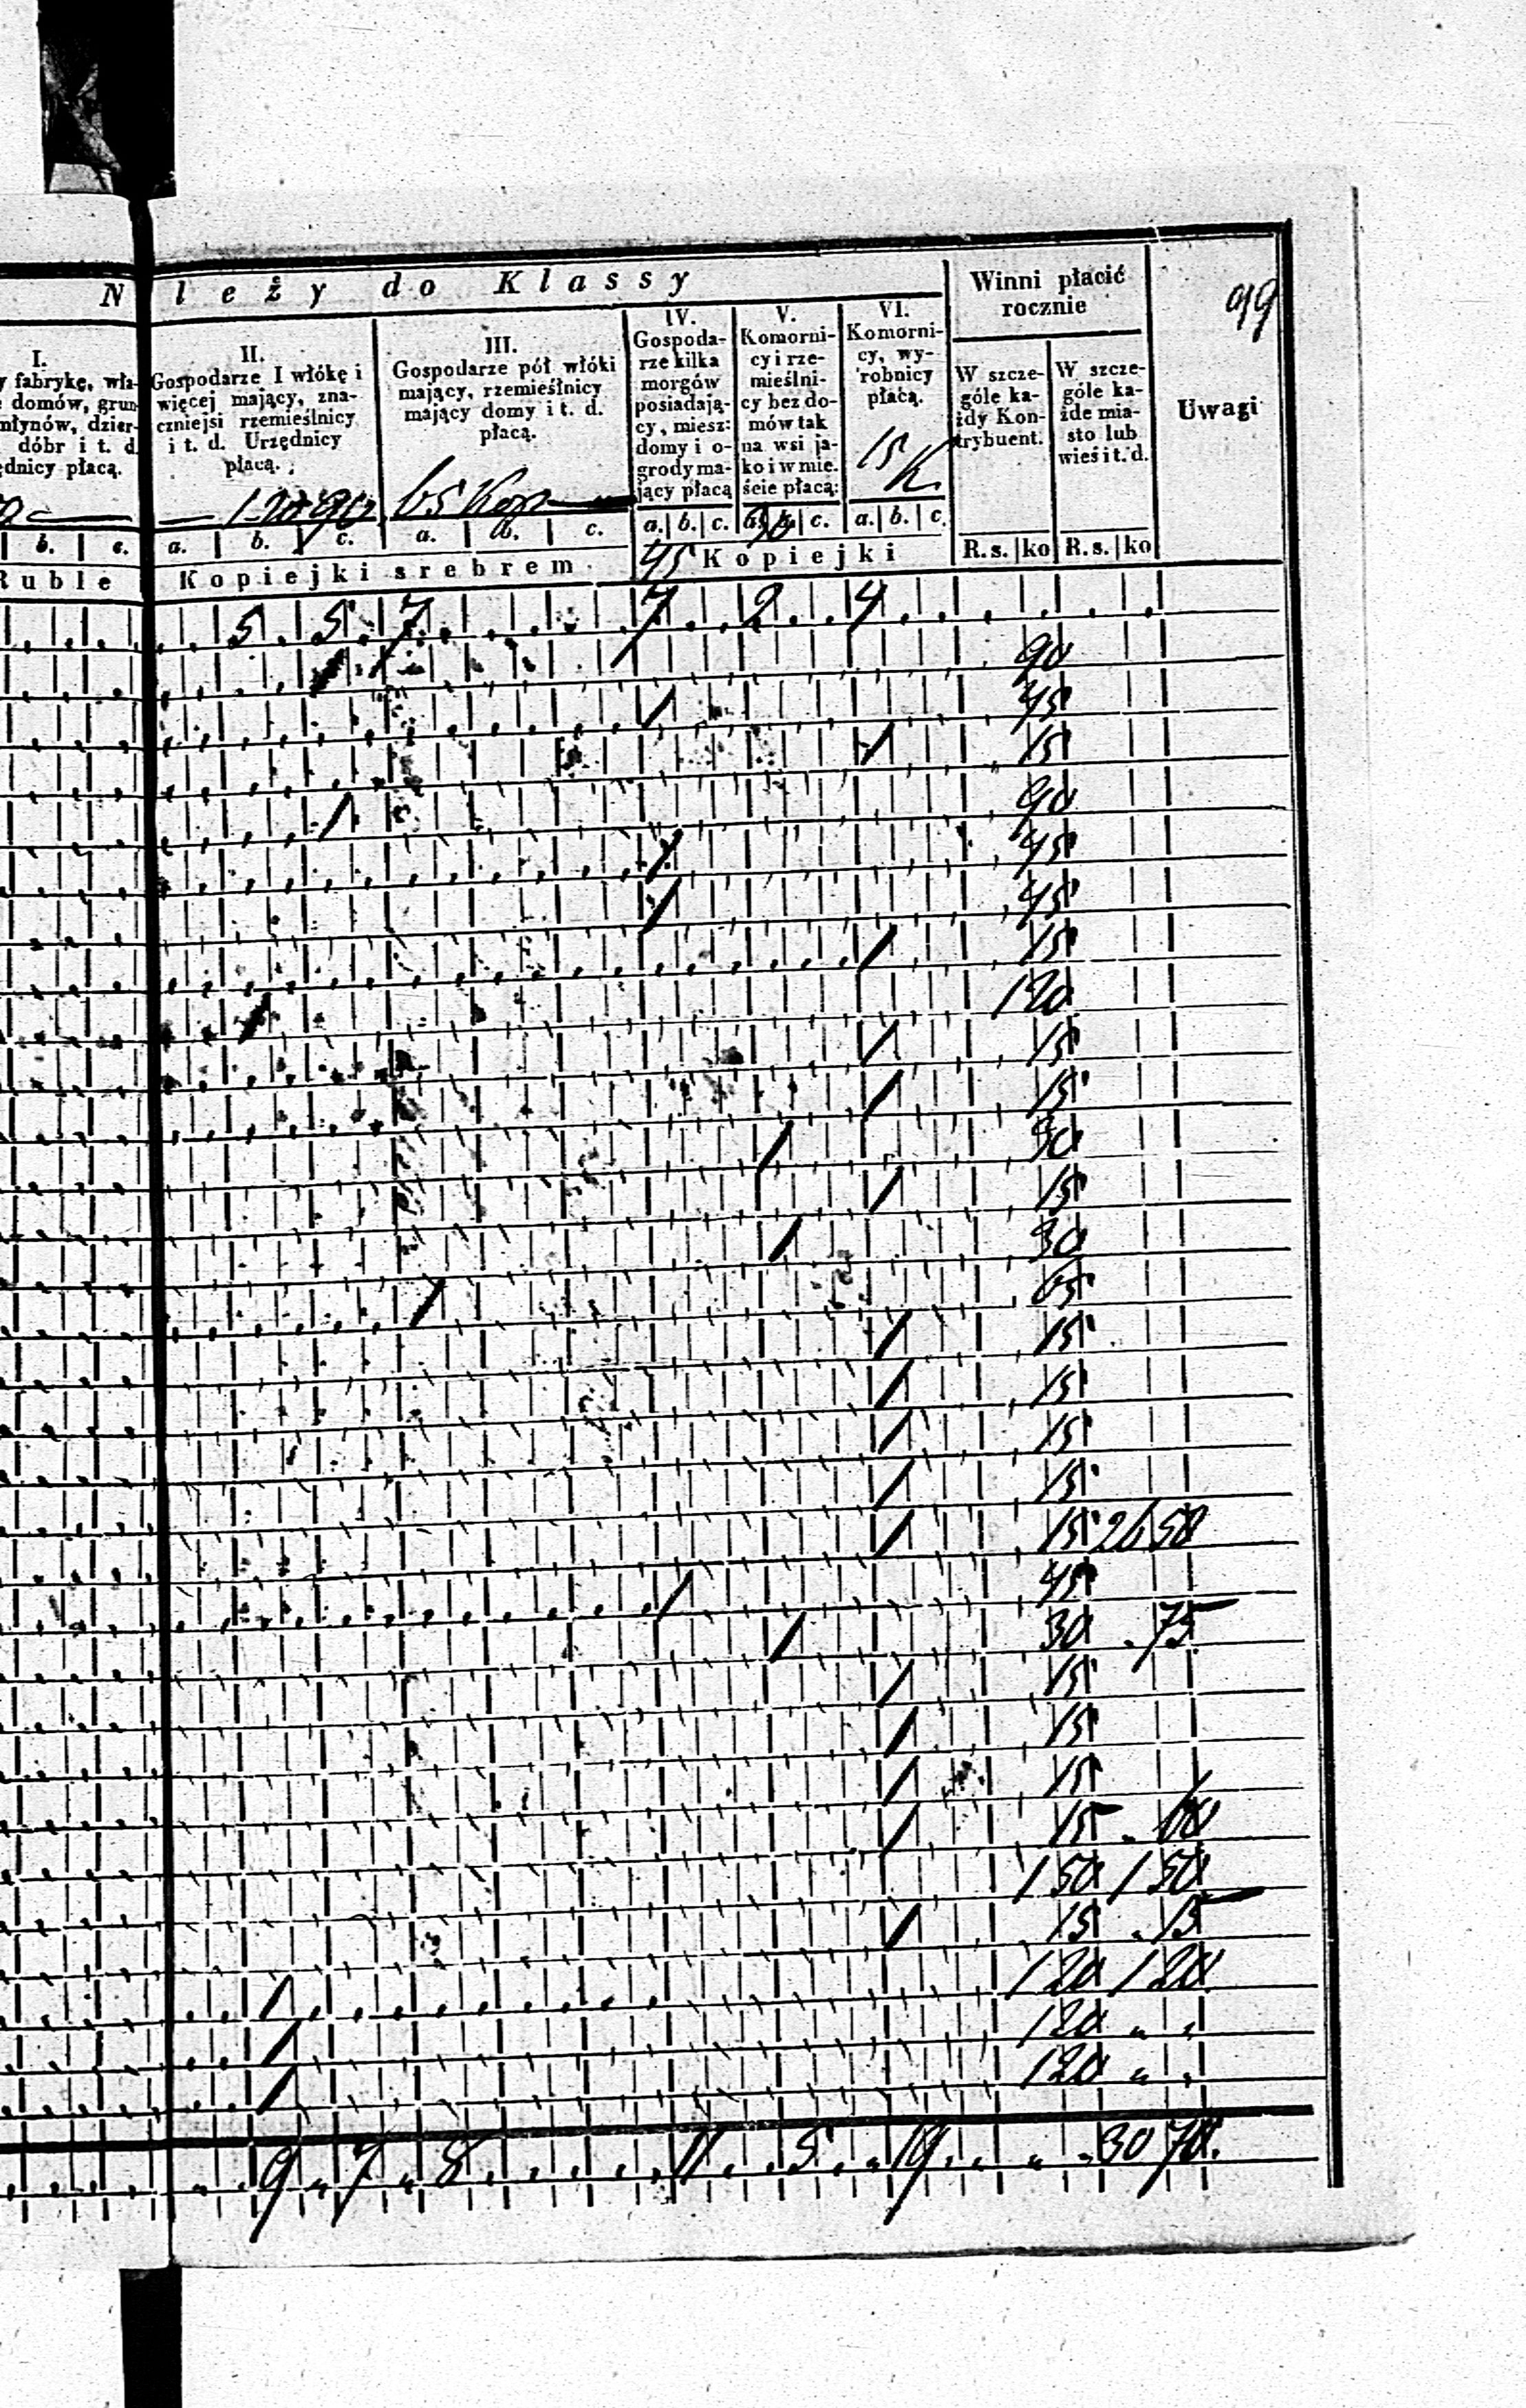 N leży do Klassy
Winni płacić
rocznie
99
I.
y fabrykę, wła-
domów, grun-
młynów, dzier-
dóbr i t. d.
ędnicy płacą.
II.
Gospodarze I włókę i
więcej mający, zna-
czniejsi rzemieślnicy
i t. d. Urzędnicy
płacą.
120 90
III.
Gospodarze pół włóki
mający, rzemieślnicy
mający domy i t. d.
płacą.
65 Kop
IV.
Gospoda-
rze kilka
morgów
posiadają-
cy, miesz:
domy i o-
grody ma-
jący płacą
V.
Komorni-
cy i rze-
mieślni-
cy bez do-
mów tak
na wsi ja-
ko i w mie.
ście płacą:
30
VI.
Komorni-
cy, wy-
robnicy
płacą.
15 K.
W szcze-
góle ka-
żdy Kon-
trybuent.
W szcze-
góle ka-
żde mia-
sto lub
wieś i t. d.
Uwagi
b. c. a. b. c. a. b. c. a. b. c. a. b. c. a. b. c. R. s. ko R. s. ko
Ruble Kopiejki srebrem 45 Kopiejki
5 5 7 7 2 4
90
/ 45
/ 15
/ 90
/ 45
/ 45
/ 15
/ 120
/ 15
/ 15
/ 30
/ 15
/ 30
/ 65
/ 15
/ 15
/ 15
/ 15
/ 15 26 50
/ 45
/ 30 . 75
/ 15
/ 15
/ 15
/ 15 . 60
1 50 1 50
/ 15 . 15
/ 1 20 1 20
/ 1 20 " "
/ 1 20 " "
9 7 8 11 5 19 30 70.